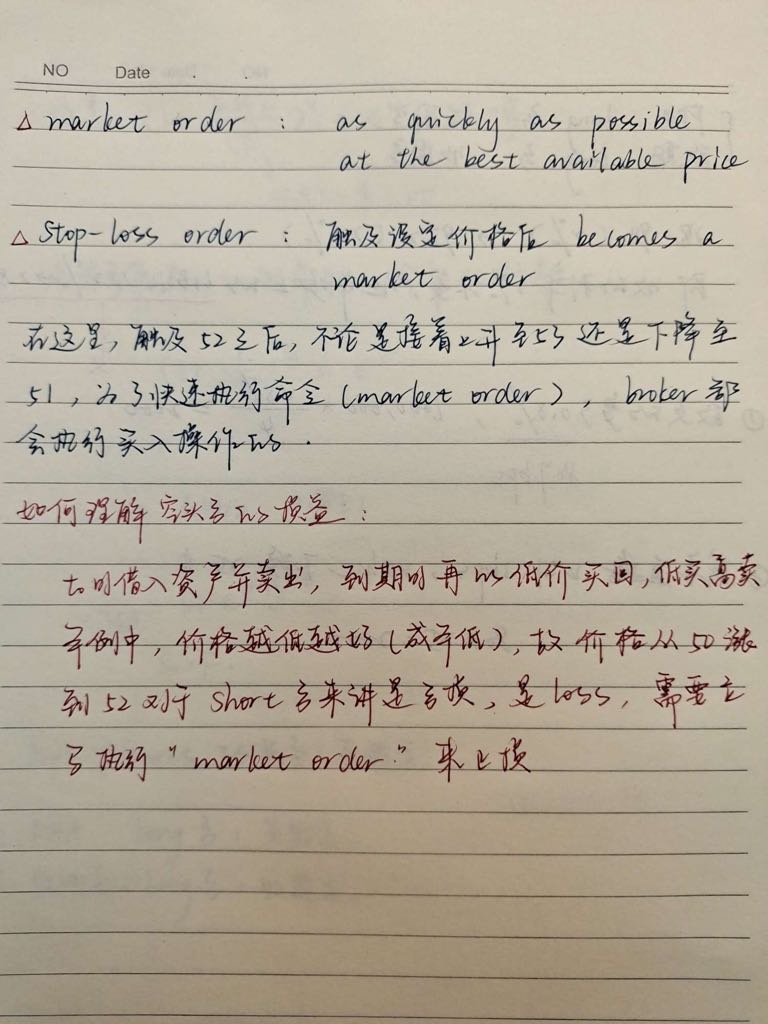 NO Date . .
△ market order : as quickly as possible
at the best available price
△ Stop-loss order : 触及设定价格后 becomes a
market order
在这里，触及52之后，不论是接着上升至53还是下降至
51，为了快速执行命令(market order)，broker都
会执行买入操作的.
如何理解空头方的损益：
t=0时借入资产并卖出，到期时再以低价买回，低买高卖
本例中，价格越低越好(成本低)，故价格从50涨
到52对于short方来讲是亏损，是loss，需要立
马执行"market order"来止损